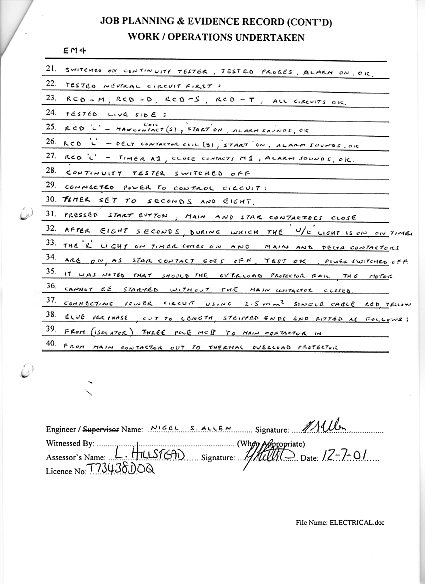 JOB PLANNING & EVIDENCE RECORD (CONT'D)
WORK / OPERATIONS UNDERTAKEN
EM4
21. SWITCHED ON CONTINUITY TESTER, TESTED PROBES, ALARM ON, OK.
22. TESTED NEUTRAL CIRCUIT FIRST:
23. RCD-M, RCD-D, RCD-S, RCD-T, ALL CIRCUITS OK.
24. TESTED LIVE SIDE:
25. RCD 'L' - COIL CONTACT(S), 'START' ON, ALARM SOUNDS, OK
26. RCD 'L' - DELT CONTACTOR COIL (B), START ON, ALARM SOUNDS, OK.
27. RCD 'L' - TIMER A1, CLOSE CONTACTS M1, ALARM SOUNDS, OK.
28. CONTINUITY TESTER SWITCHED OFF
29. CONNECTED POWER TO CONTROL CIRCUIT:
30. TIMER SET TO SECONDS AND EIGHT.
31. PRESSED START BUTTON, MAIN AND STAR CONTACTORS CLOSE
32. AFTER EIGHT SECONDS, DURING WHICH THE 'U/C' LIGHT IS ON ON TIMER
33. THE 'R' LIGHT ON TIMER COMES ON AND MAIN AND DELTA CONTACTORS
34. ARE ON, AS STAR CONTACT GOES OFF, TEST OK, POWER SWITCHED OFF
35. IT WAS NOTED THAT SHOULD THE OVERLOAD PROTECTOR FAIL, THE MOTOR
36. CANNOT BE STARTED WITHOUT THE MAIN CONTACTOR CLOSED.
37. CONNECTING POWER CIRCUIT USING 2.5mm² SINGLE CABLE RED YELLOW
38. BLUE PER PHASE, CUT TO LENGTH, STRIPPED ENDS AND FITTED AS FOLLOWS:
39. FROM (ISOLATOR) THREE POLE MCB TO MAIN CONTACTOR IN
40. FROM MAIN CONTACTOR OUT TO THERMAL OVERLOAD PROTECTOR
Engineer / Supervisor Name: NIGEL S ALLEN Signature:
Witnessed By: (When Appropriate)
Assessor's Name: L. HILLSTEAD Signature: Date: 12-7-01
Licence No: T73438DOQ
File Name: ELECTRICAL.doc